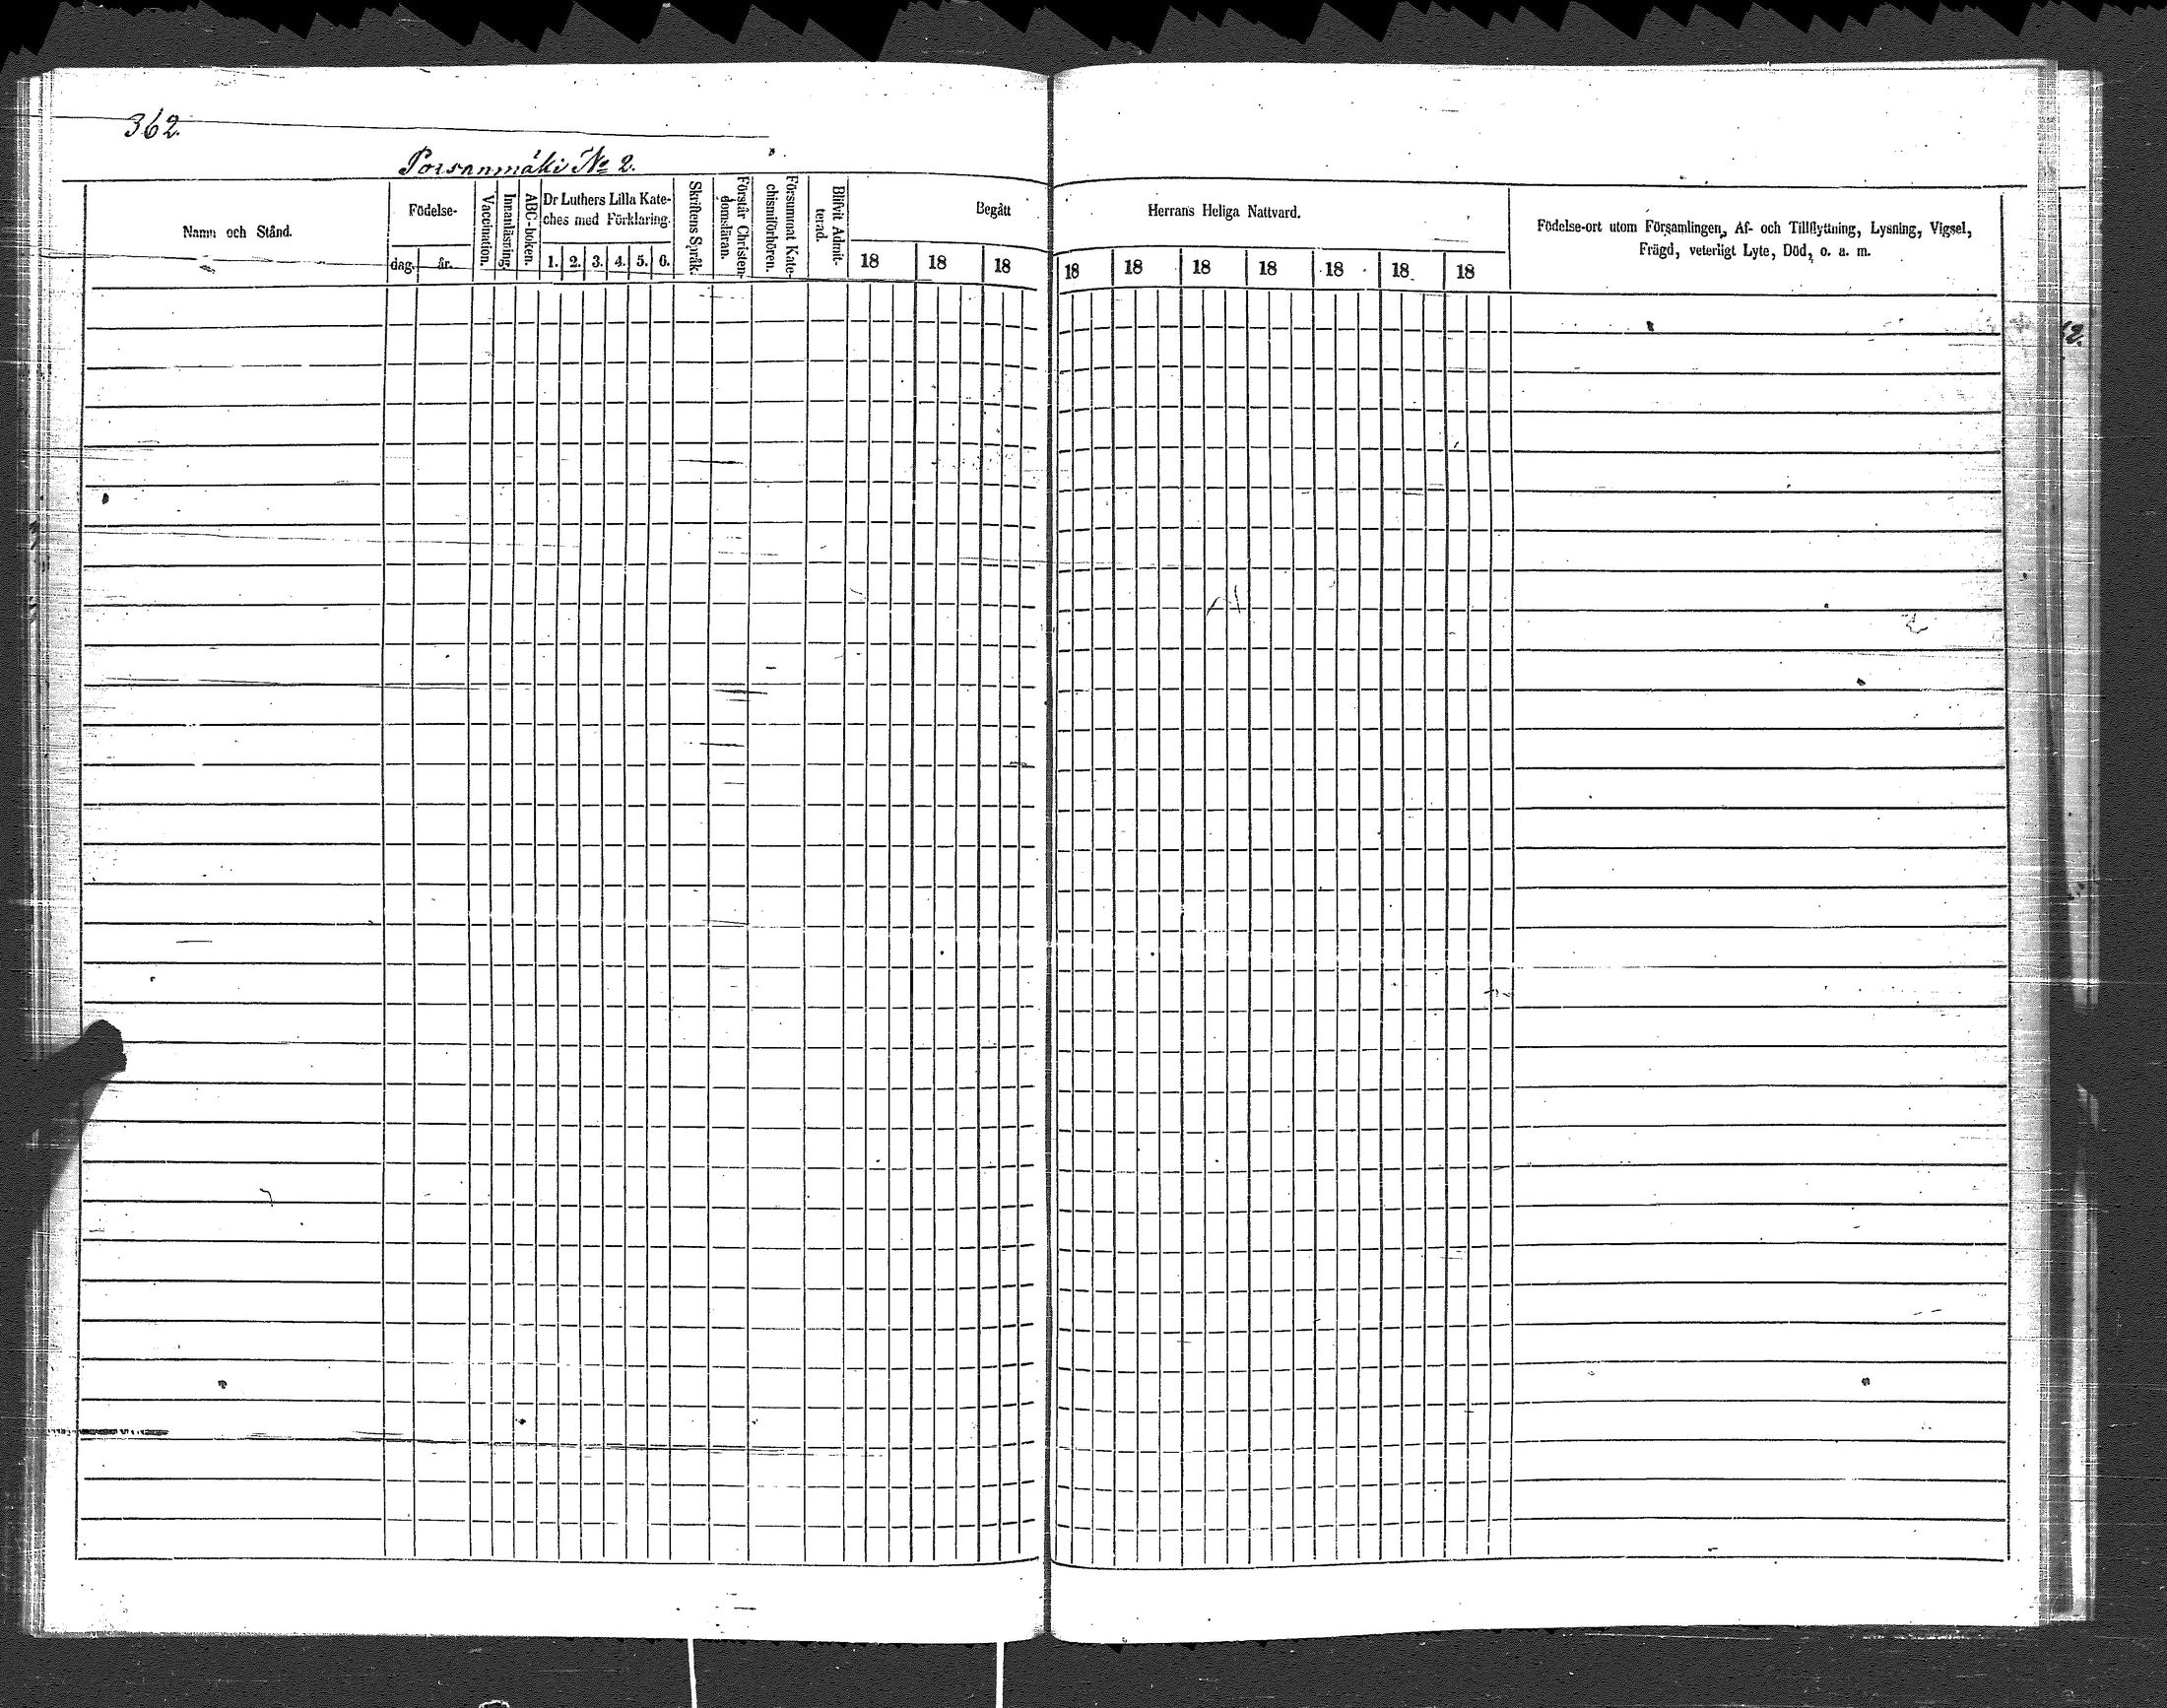 362.
Porsanmäki No 2.
Namn och Stånd.
Födelse-
dag.
år.
Vaccination.
Innanläsning.
ABC-boken.
Dr Luthers Lilla Kate-
ches med Förklaring.
1. 2. 3. 4. 5. 6.
Skriftens Språk.
Förstår Christen-
domsläran.
Försummat Kate-
chismiförhören.
Blifvit Admit-
terad.
Begått
18 18 18
Herrans Heliga Nattvard.
18 18 18 18 18 18 18
Födelse-ort utom Församlingen, Af- och Tillflyttning, Lysning, Vigsel,
Frägd, veterligt Lyte, Död, o. a. m.